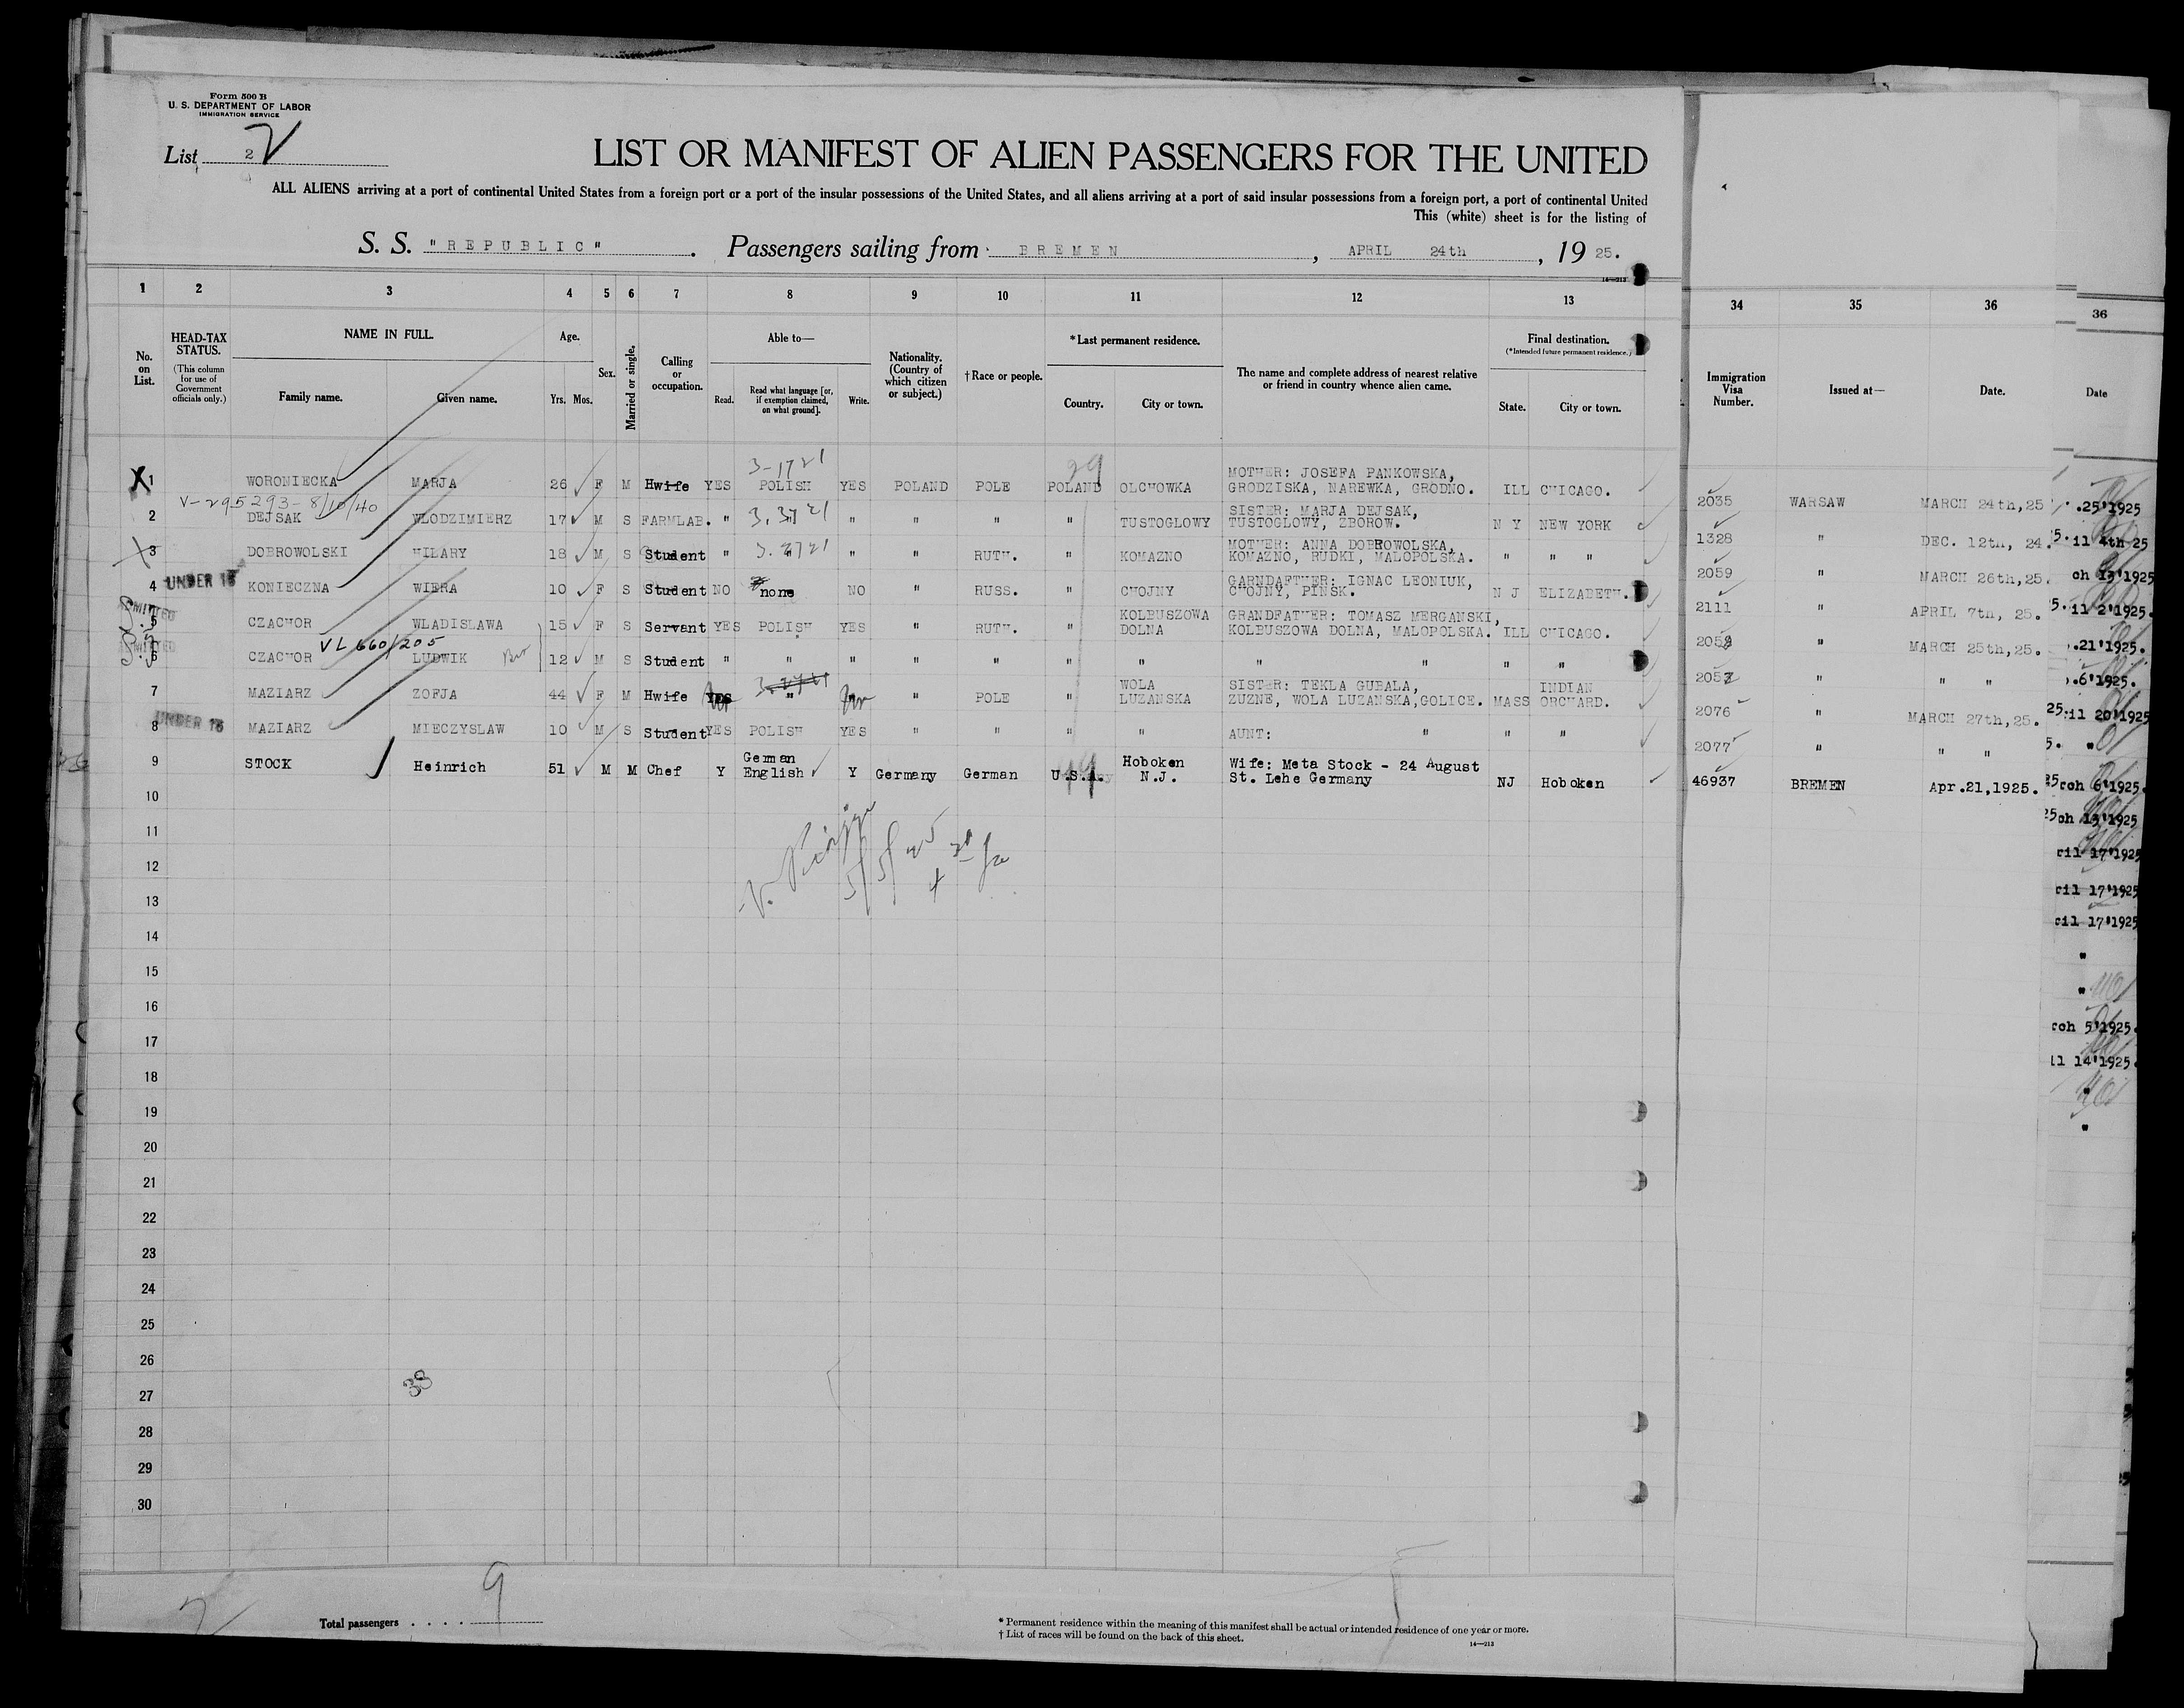 Form 500 B
U. S. DEPARTMENT OF LABOR
IMMIGRATION SERVICE
List 2 2
LIST OR MANIFEST OF ALIEN PASSENGERS FOR THE UNITED
ALL ALIENS arriving at a port of continental United States from a foreign port or a port of the insular possessions of the United States, and all aliens arriving at a port of said insular possessions from a foreign port, a port of continental United
This (white) sheet is for the listing of
S. S. "REPUBLIC". Passengers sailing from BREMEN, APRIL 24th, 1925.
14—213
1 2 3 4 5 6 7 8 9 10 11 12 13 34 35 36 36
No. on List. HEAD-TAX STATUS. (This column for use of Government officials only.) NAME IN FULL. Family name. Given name. Age. Yrs. Mos. Sex. Married or single. Calling or occupation. Able to— Read. Read what language [or, if exemption claimed, on what ground]. Write. Nationality. (Country of which citizen or subject.) †Race or people. *Last permanent residence. Country. City or town. The name and complete address of nearest relative or friend in country whence alien came. Final destination. (*Intended future permanent residence.) State. City or town. Immigration Visa Number. Issued at— Date. Date
3-1721 29
X 1 WORONIECKA MARJA 26 F M Hwife YES POLISH YES POLAND POLE POLAND OLCHOWKA MOTHER: JOSEFA PANKOWSKA, GRODZISKA, NAREWKA, GRODNO. ILL CHICAGO. 2035 WARSAW MARCH 24th,25
V-295293-8/10/40
2 DEJSAK WLODZIMIERZ 17 M S FARMLAB. " " " " " TUSTOGLOWY SISTER: MARJA DEJSAK, TUSTOGLOWY, ZBOROW. N Y NEW YORK 1328 " DEC. 12th, 24.
X 3 DOBROWOLSKI HILARY 18 M S Student " " " RUTH. " KOMAZNO MOTHER: ANNA DOBROWOLSKA, KOMAZNO, RUDKI, MALOPOLSKA. " " " 2059 " MARCH 26th,25.
4 UNDER 16 KONIECZNA WIERA 10 F S Student NO none NO " RUSS. " CHOJNY GARNDAFTHER: IGNAC LEONIUK, CHOJNY, PINSK. N J ELIZABETH. 2111 " APRIL 7th, 25.
ADMITTED
5 CZACHOR WLADISLAWA 15 F S Servant YES POLISH YES " RUTH. " KOLBUSZOWA DOLNA GRANDFATHER: TOMASZ MERGANSKI, KOLBUSZOWA DOLNA, MALOPOLSKA. ILL CHICAGO. " MARCH 25th,25.
VL 660/205
ADMITTED
6 CZACHOR LUDWIK Bro 12 M S Student " " " " " " " " " " " " " "
7 MAZIARZ ZOFJA 44 F M Hwife YES " " POLE " WOLA LUZANSKA SISTER: TEKLA GUBALA, ZUZNE, WOLA LUZANSKA,GOLICE. MASS INDIAN ORCHARD. 2076 " MARCH 27th,25.
8 UNDER 16 MAZIARZ MIECZYSLAW 10 M S Student YES POLISH YES " " " " AUNT: " " " 2077 " " "
9 STOCK Heinrich 51 M M Chef Y German English Y Germany German U.S.A. Hoboken N.J. Wife: Meta Stock - 24 August St. Lehe Germany NJ Hoboken 46937 BREMEN Apr.21,1925.
10
11
12
13
14
15
16
17
18
19
20
21
22
23
24
25
26
27
28
29
30
38
Total passengers . . . . . 9
* Permanent residence within the meaning of this manifest shall be actual or intended residence of one year or more.
† List of races will be found on the back of this sheet.
14—213
.25'1925
il 4th 25
ch 13'1925
il 2'1925.
.21'1925.
.6'1925.
il 20'1925
"
ch 6'1925.
ch 13'1925
ril 17'1925
ril 17'1925
ril 17'1925
"
"
ch 5'1925.
il 14'1925.
"
"